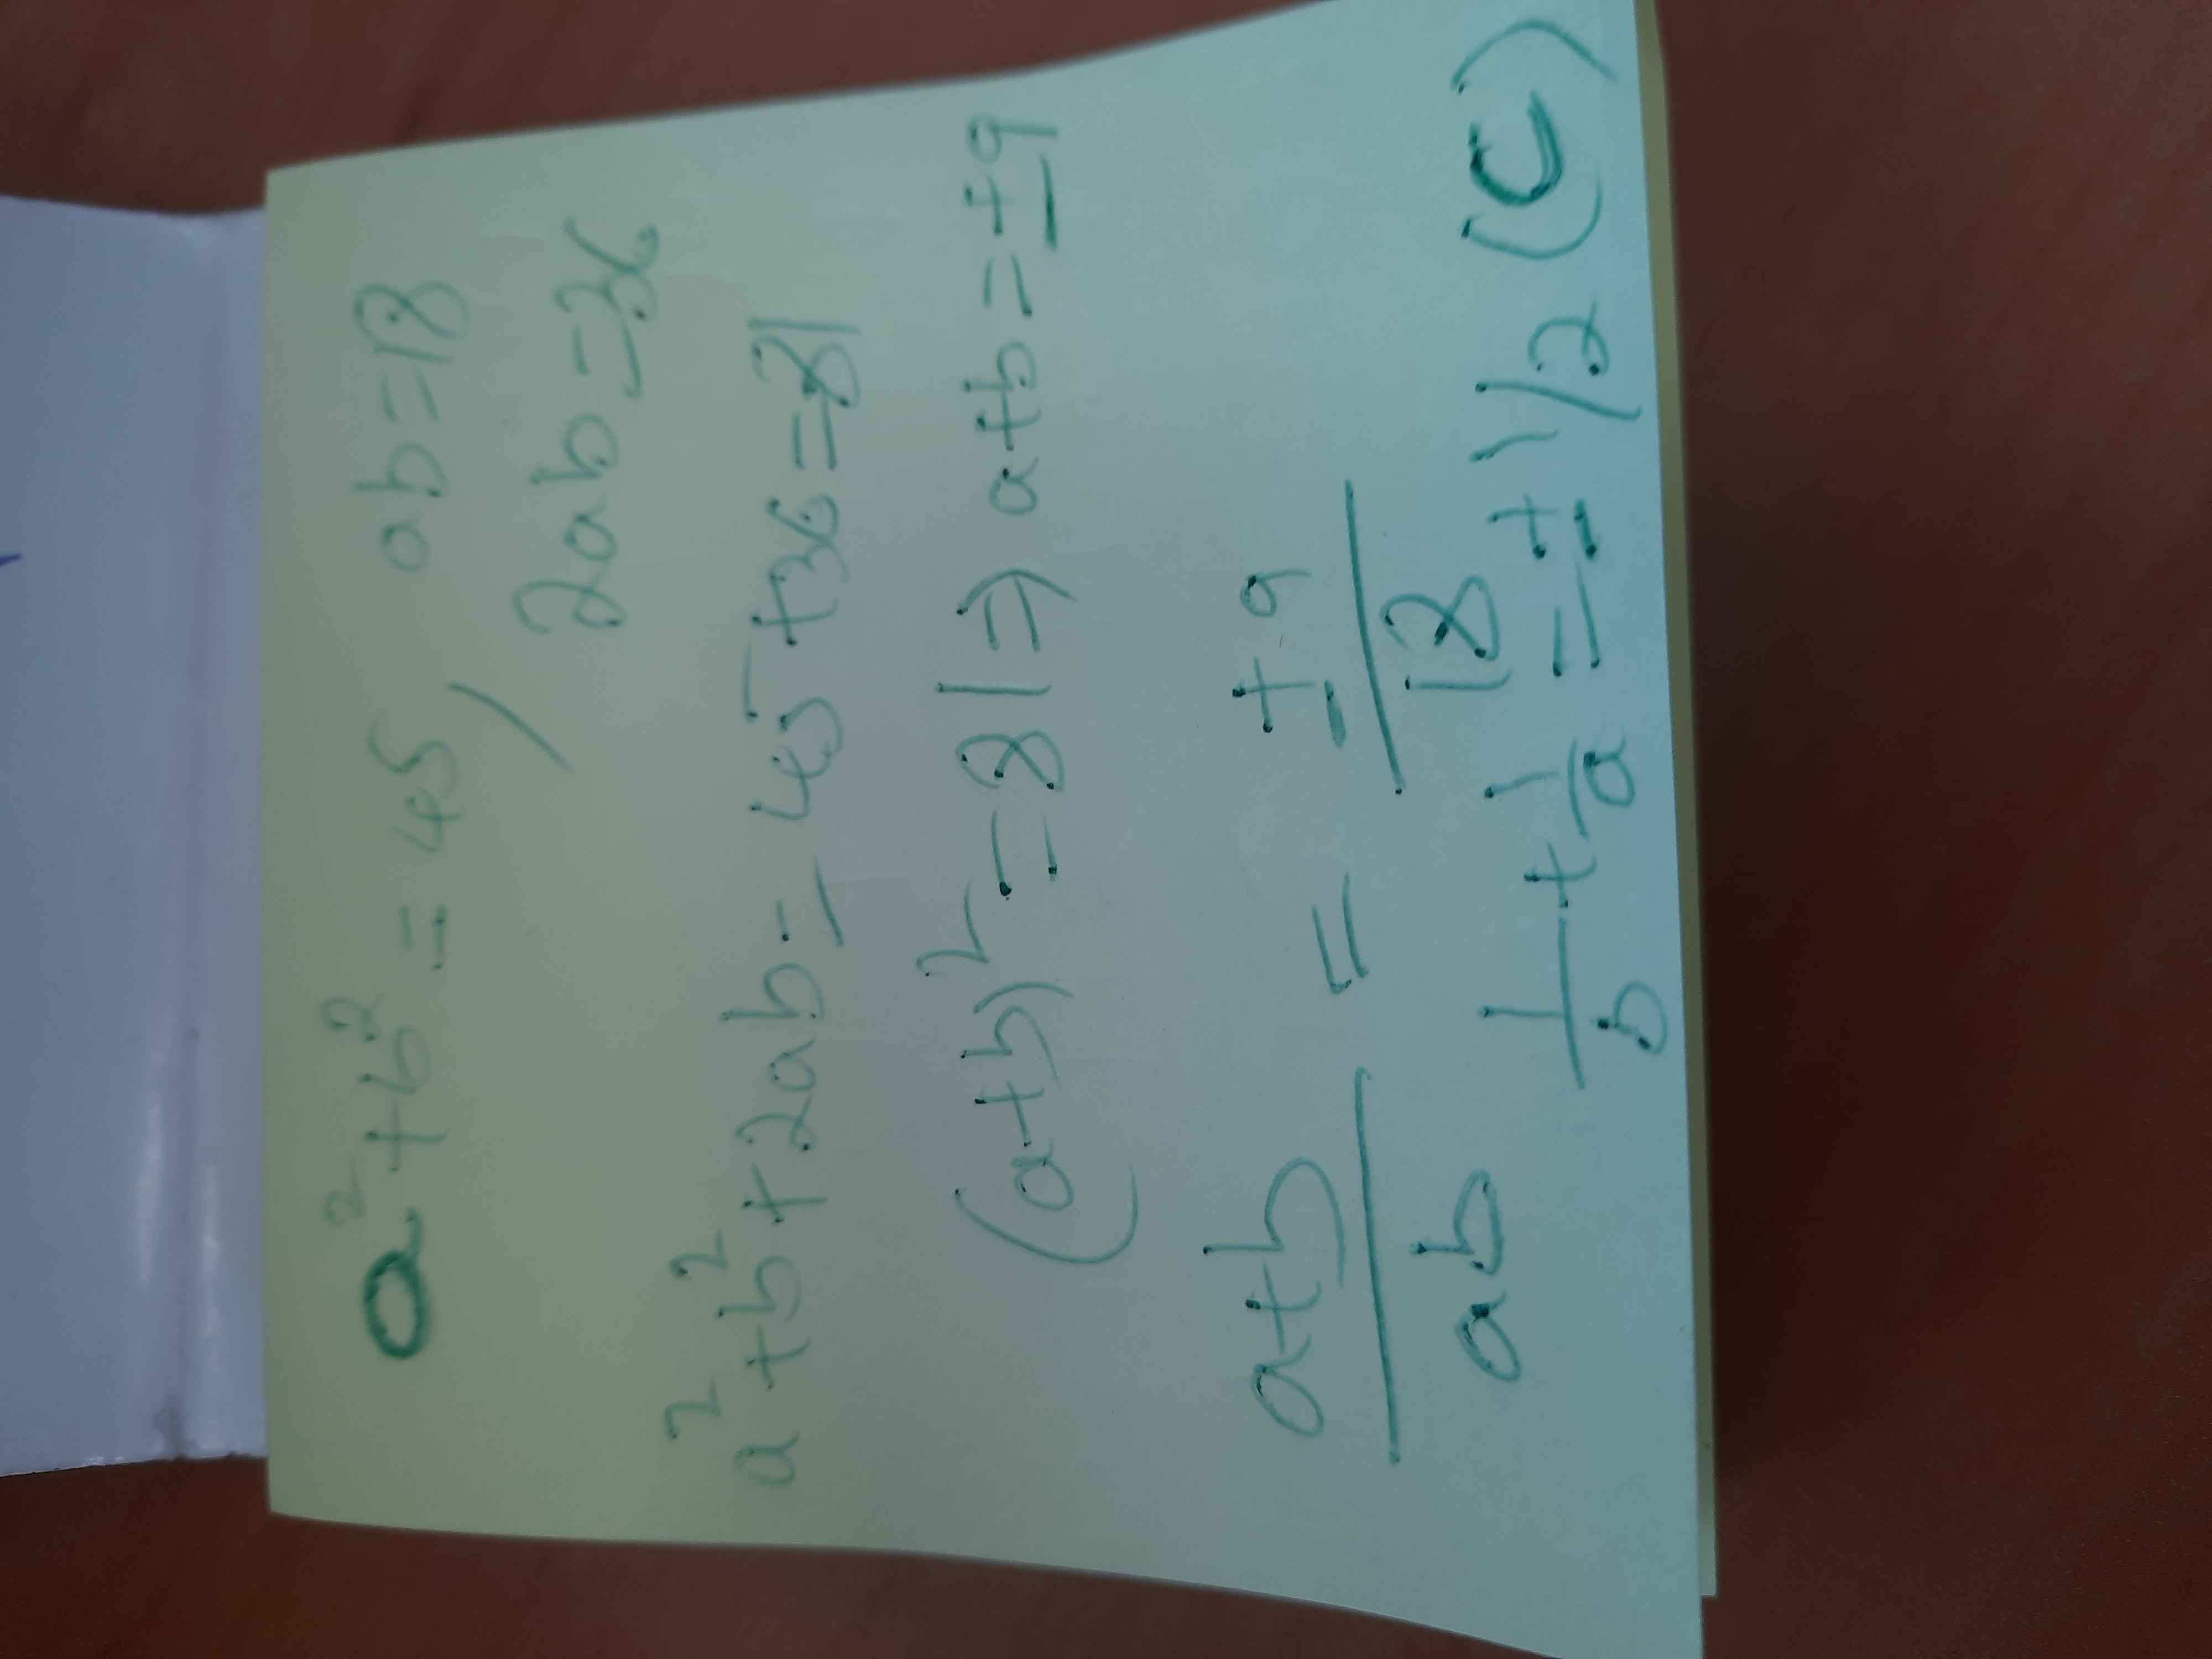 a² + b² = 45, ab = 18
2ab = 36
a² + b² + 2ab = 45 + 36 = 81
(a+b)² = 81 ⇒ a+b = ±9
a+b/ab = ±9/18
1/b + 1/a = ±1/2 (C)